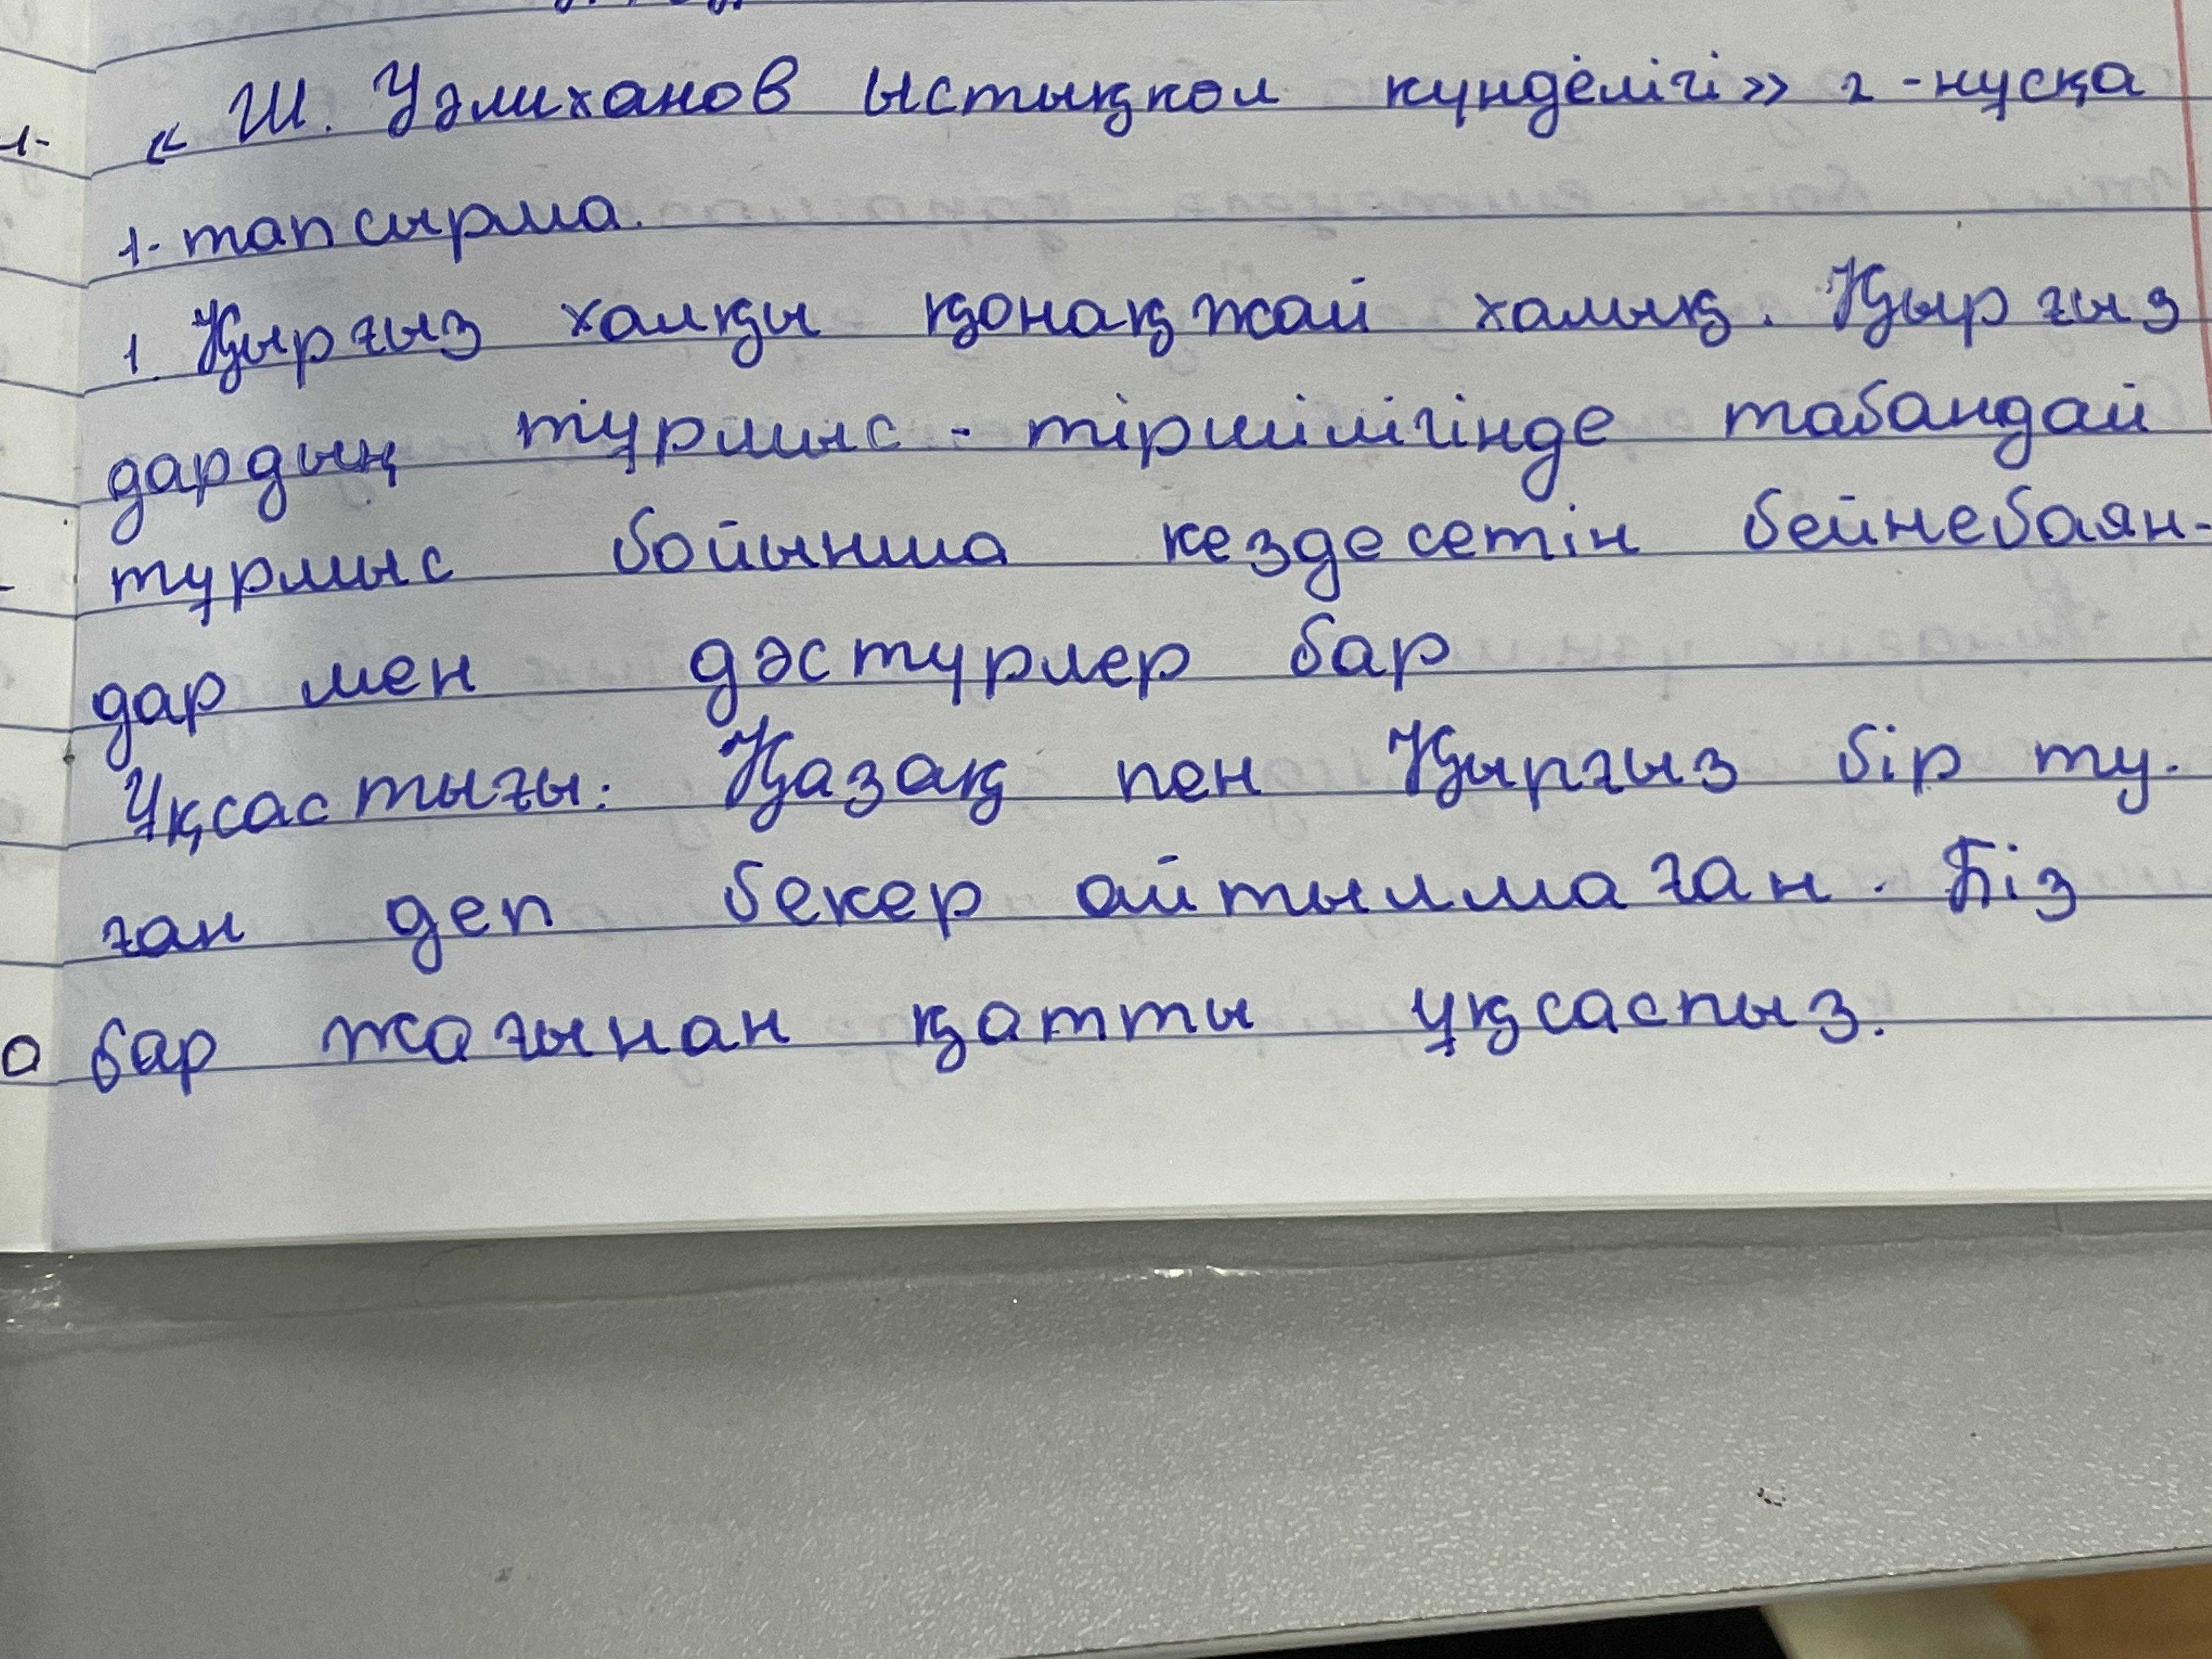 « Ш. Уәлиханов Ыстықкөл күнделігі» 2 -нұсқа
1- тапсырма.
1. Қырғыз халқы қонақжай халық. Қырғыз
дардың тұрмыс - тіршілігінде табандай
тұрмыс бойынша кездесетін бейнебаян-
дар мен дәстүрлер бар
Ұқсастығы: Қазақ пен Қырғыз бір ту-
ған деп бекер айтылмаған. Біз
бар жағынан қатты ұқсаспыз.